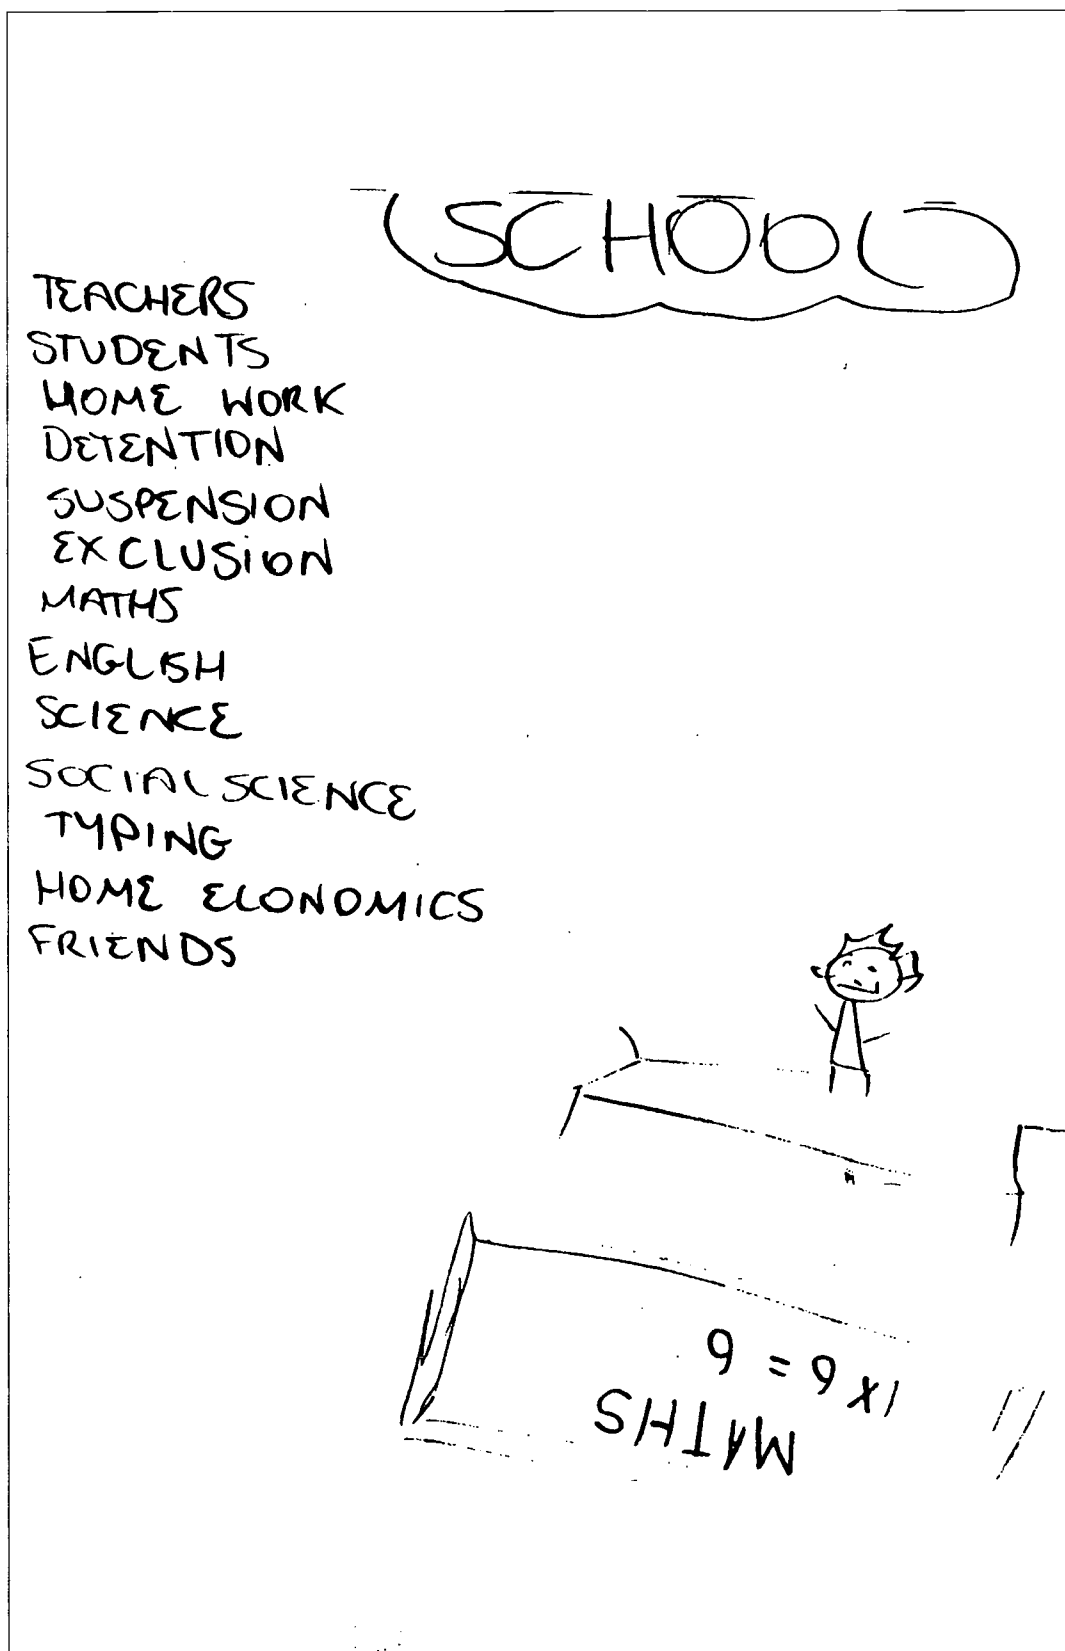 SCHOOL
TEACHERS
STUDENTS
HOME WORK
DETENTION
SUSPENSION
EXCLUSION
MATHS
ENGLISH
SCIENCE
SOCIAL SCIENCE
TYPING
HOME ECONOMICS
FRIENDS
MATHS
1 x 6 = 6